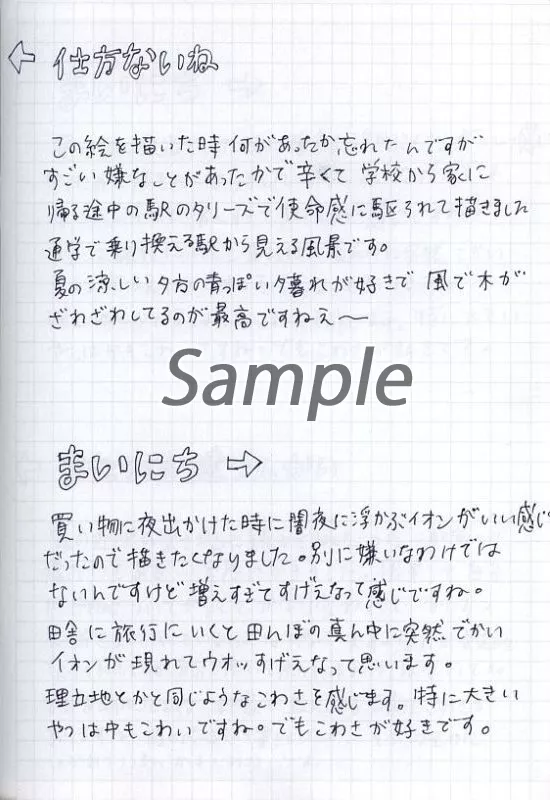 ← 仕方ないね
この絵を描いた時何があったか忘れたんですが
すごい嫌なことがあったかで辛くて 学校から家に
帰る途中の駅のタリーズで使命感に駆られて描きました
通学で乗り換える駅から見える風景です。
夏の涼しい夕方の青っぽい夕暮れが好きで 風で木が
ざわざわしてるのが最高ですねえ〜
Sample
まいにち →
買い物に夜出かけた時に闇夜に浮かぶイオンがいい感じ
だったので描きたくなりました。別に嫌いなわけでは
ないんですけど増えすぎてすげえなって感じですね。
田舎に旅行にいくと田んぼの真ん中に突然でかい
イオンが現れてウオッすげえなって思います。
埋立地とかと同じようなこわさを感じます。特に大きい
やつは中もこわいですね。でもこわさが好きです。